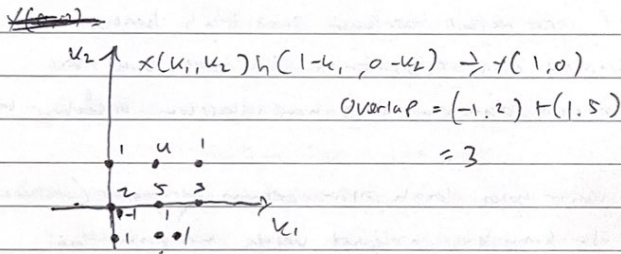 y(0,0)
k2 x(k1,k2)h(1-k1,0-k2) → y(1,0)
Overlap = (-1.2) + (1.5)
= 3
1 4 1
2 5 3
-1 1
k1
1 -1